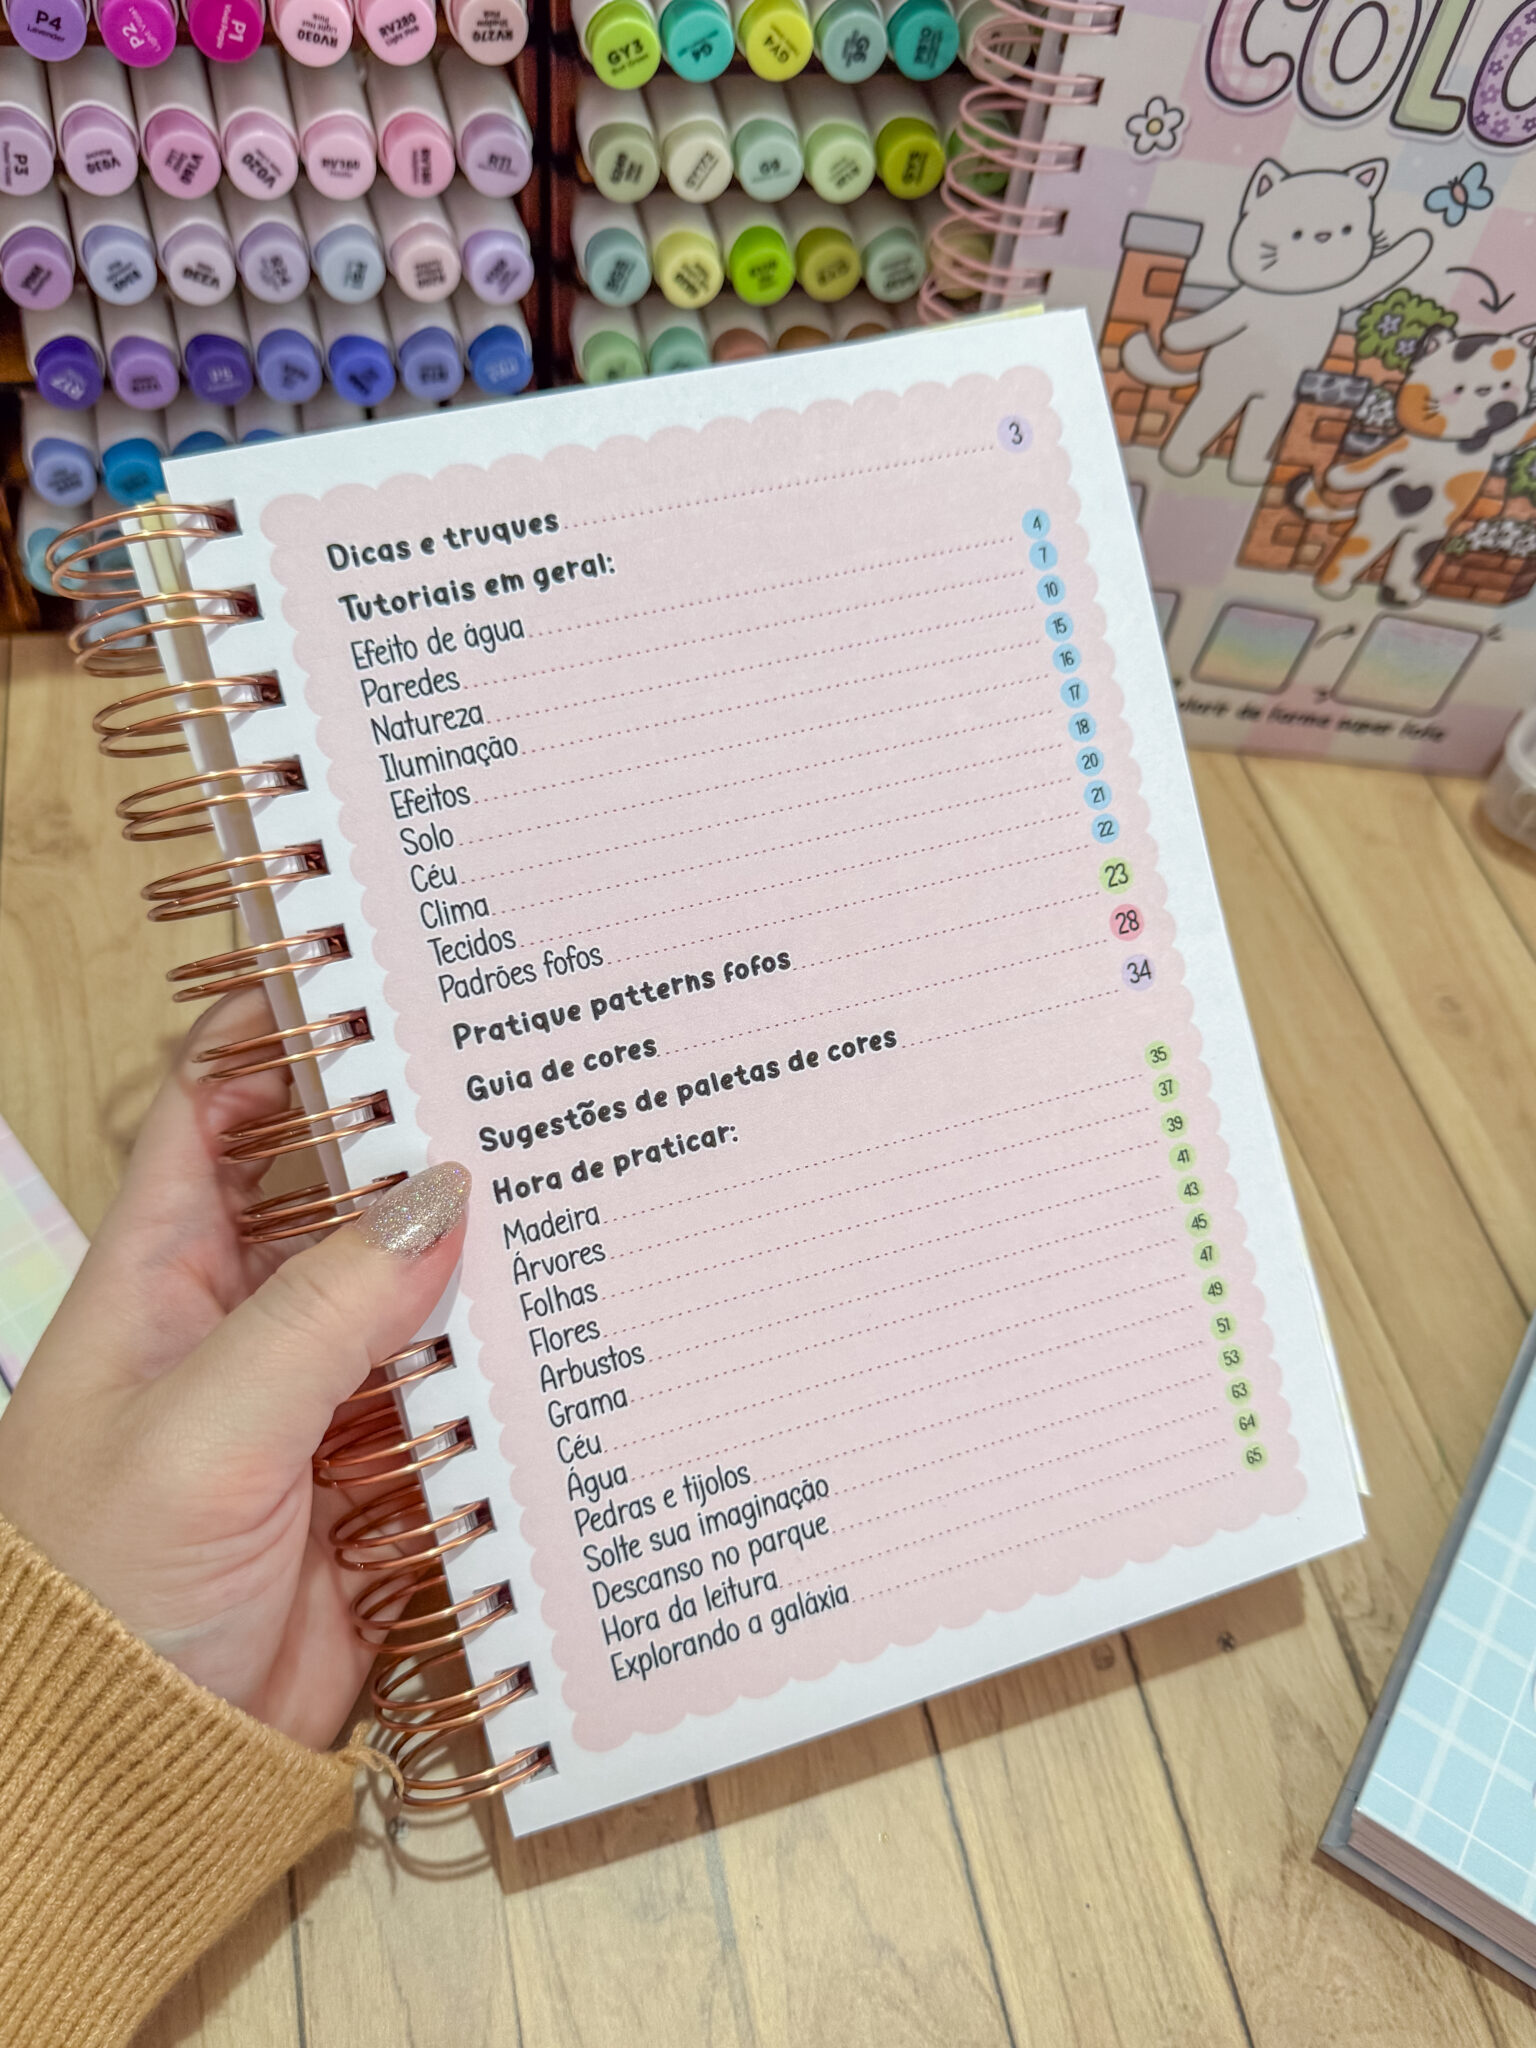 P4
Lavender
P2
P1
RV030
RV270
GY3
G4
GY4
P3
V030
V160
V020
GY172
G9
COLO
Dicas e truques 3
Tutoriais em geral:
Efeito de água 4
Paredes 7
Natureza 10
Iluminação 15
Efeitos 16
Solo 17
Céu 18
Clima 20
Tecidos 21
Padrões fofos 22
Pratique patterns fofos 23
Guia de cores 28
Sugestões de paletas de cores 34
Hora de praticar:
Madeira 35
Árvores 37
Folhas 39
Flores 41
Arbustos 43
Grama 45
Céu 47
Água 49
Pedras e tijolos 51
Solte sua imaginação 53
Descanso no parque 63
Hora da leitura 64
Explorando a galáxia 65
de forma super fofa